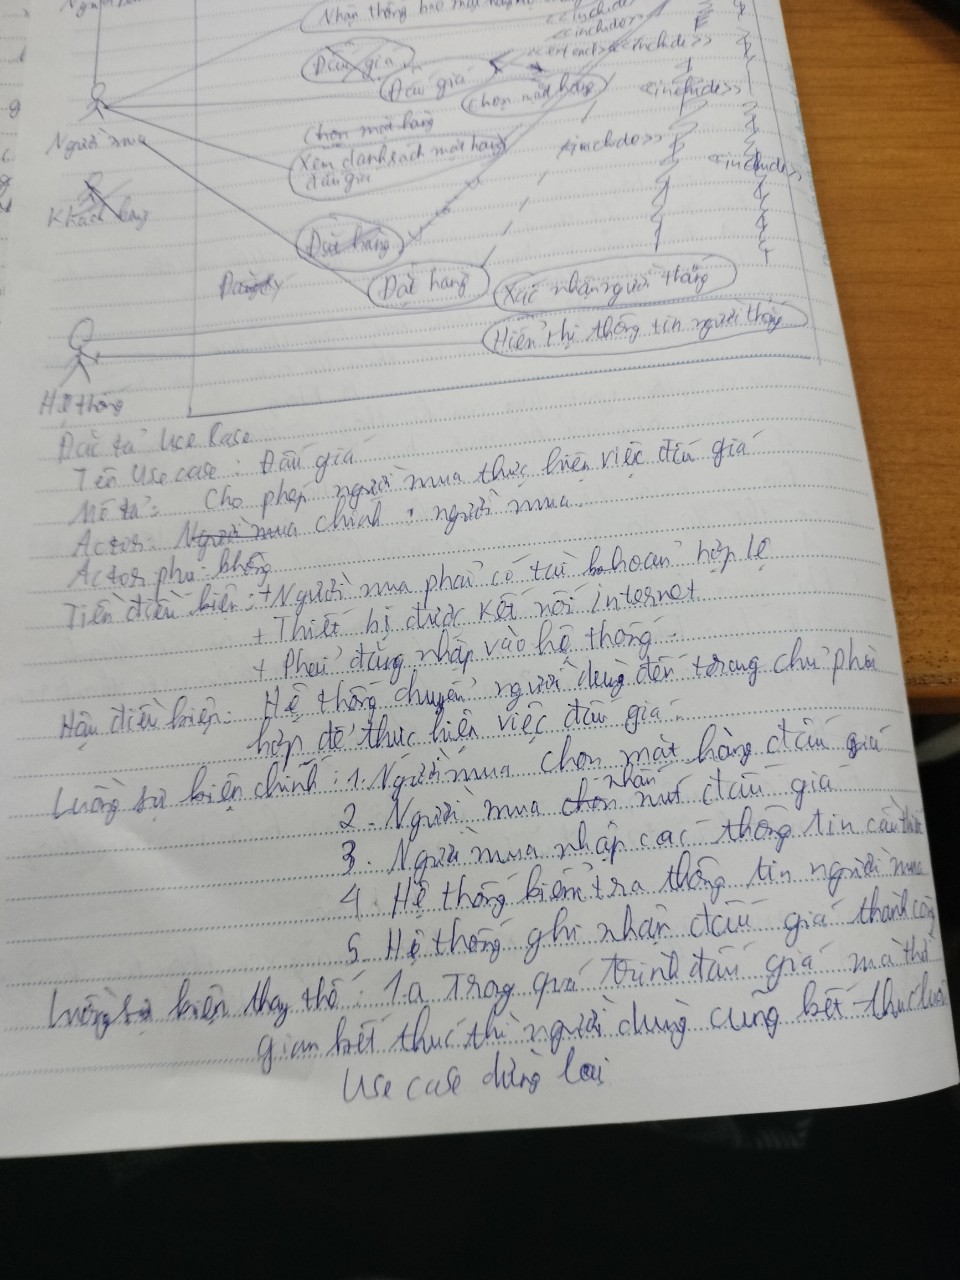 Nhận thông báo
<<include>>
<<include>>
<<extend>>
<<include>>
Đấu giá
Đấu giá
Chọn mặt hàng
<<include>>
Người mua
Chọn mặt hàng
Xem danh sách mặt hàng
đấu giá
<<include>>
<<include>>
Khách hàng
Đặt hàng
Đặt hàng
Xác nhận người thắng
Hiển thị thông tin người thắng
Hệ thống
Đặc tả Use Case
Tên Use case : Đấu giá
Mô tả : Cho phép người mua thực hiện việc đấu giá
Actor : Người mua chính : người mua.
Actor phụ : không
Tiền điều kiện : + Người mua phải có tài khoản hợp lệ
+ Thiết bị được kết nối internet
+ Phải đăng nhập vào hệ thống.
Hậu điều kiện : Hệ thống chuyển người dùng đến trang chủ phù
hợp để thực hiện việc đấu giá.
Luồng sự kiện chính : 1. Người mua chọn mặt hàng đấu giá
2. Người mua chọn nhấn nút đấu giá
3. Người mua nhập các thông tin cần thiết
4. Hệ thống kiểm tra thông tin người mua
5. Hệ thống ghi nhận đấu giá thành công
Luồng sự kiện thay thế : 1.a Trong quá trình đấu giá mà thời
gian kết thúc thì người dùng cũng kết thúc luôn
Use case dừng lại